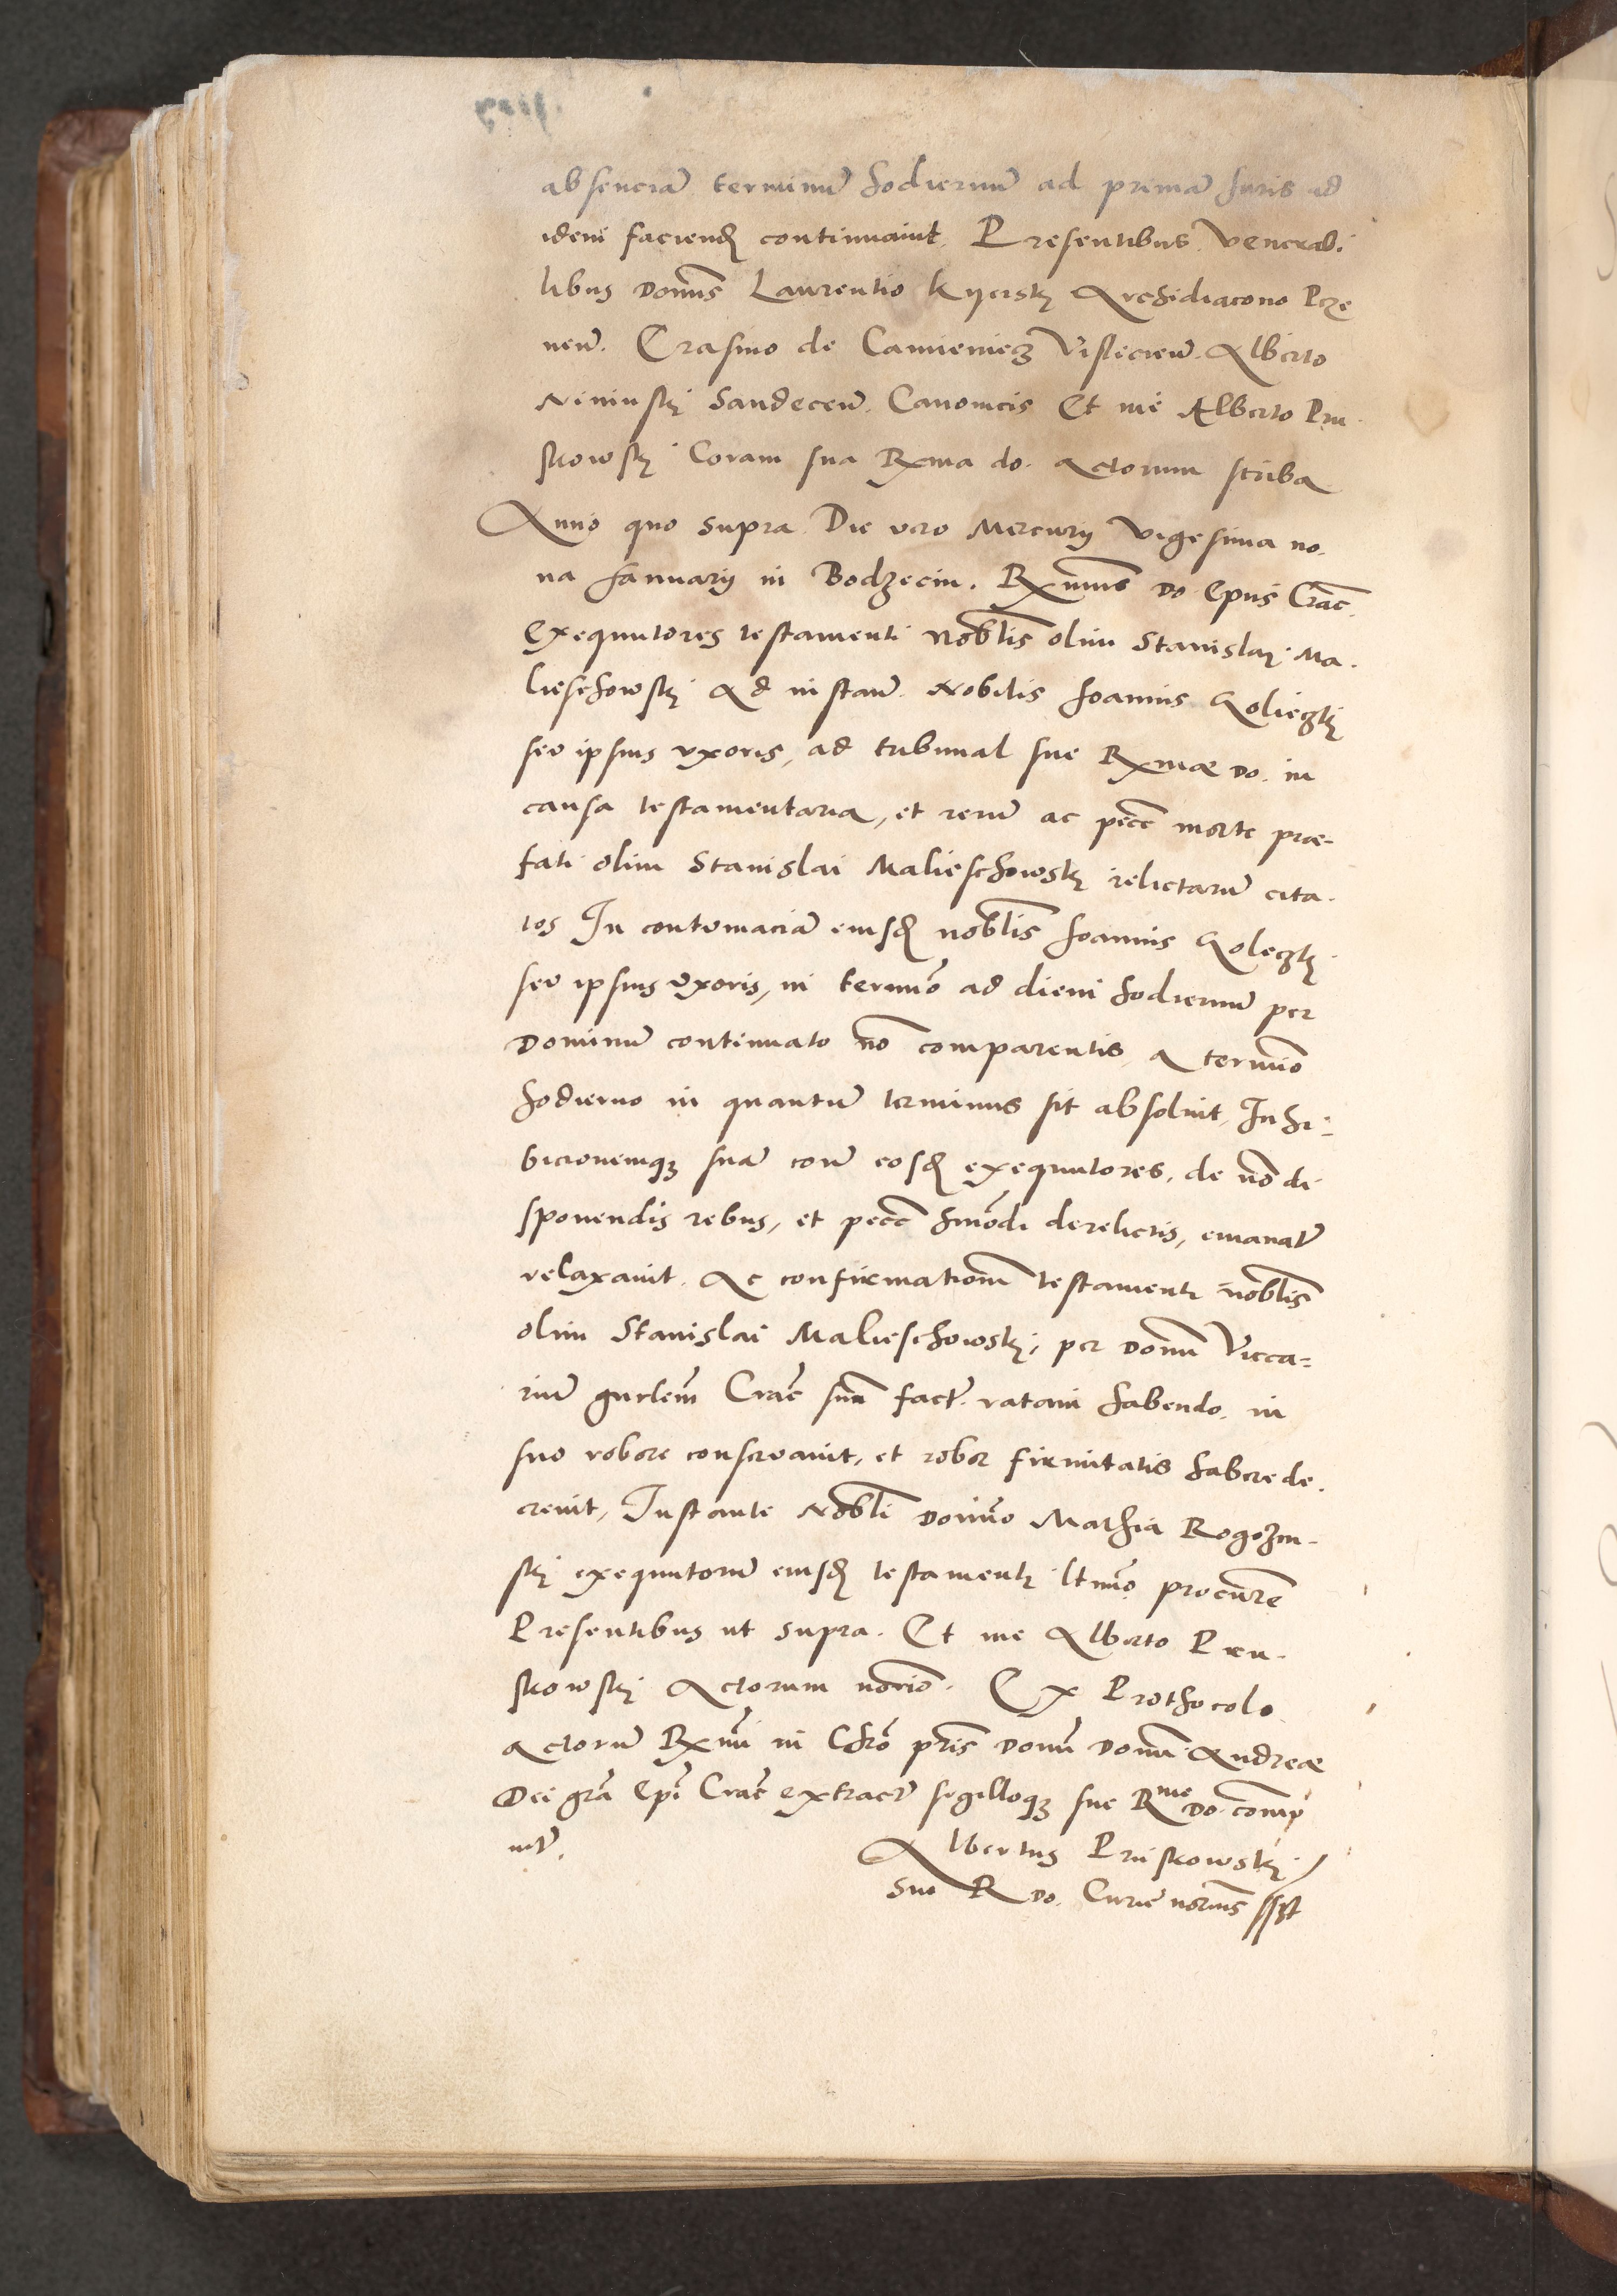 absenciã terminũ hodiernũ ad primã Juris ad
idem faciend continuavit. Presentibus Venerabi
libus Domĩs Laurentio Kyersky Archidiacono Prze
neñ. Erasmo de Camieniecz Visliciẽn. Alberto
Niniusky Sandeceñ. Canonicis Et me Alberto Pru
skowsky Coram sua Rxma do. Actorum scriba
Anno quo supra Die vero Mercurij Vigesima no
na Januarij in Bodzecin. Rxmus do Epus Crac̃.
Exequutores testamenti nobl̃is olim Stanislai Ma
lieschowsky Ad instañ. Nobilis Joannis
seu ipsius uxoris, ad tribunal sue Rxmae do. in
causa testamentaria, et rerũ ac pecc̃ morte prae-
fati olim Stanislai Malieschowsky relictarũ cita
tos In contumaciã eiusd nobl̃is Joannis
seu ipsius Uxoris, in termĩo ad diem hodiernũ per
Dominũ continuato nõ comparentis, a termĩo
hodierno in quantũ terminus sit absolvit, Inhi-
bicionemq3 suã eosd exequutores, de nõ di
sponendis rebus, et pecc̃ hmõdi derelictis, emanat̃
relaxavit. Ac confirmationẽ testamenti nobl̃is
olim Stanislai Malieschowsky, per Domĩ Vicca-
riũ gnrlem̃ Crac̃ suñ fact̃. ratam habendo. in
suo robore conservavit, et robor firmitatis habere de
crevit, Instante Nobl̃i Domĩo Mathia Rogozin-
sky exequutorũ eiusd testamenti ltimõ procurẽ
Presentibus ut supra. Et me Alberto Pru
skowsky Actorum norĩo. Ex Prothocolo
Actorũ Rxmĩ in Chrõ pr̃is Domĩ Domĩ Andreae
Dei grã Epĩ Crac̃ extract̃ sigilloq3 sue Rme Do. comm
nit̃.
Albertus Pruskowsky
sue R Do. Curie norĩus sspt